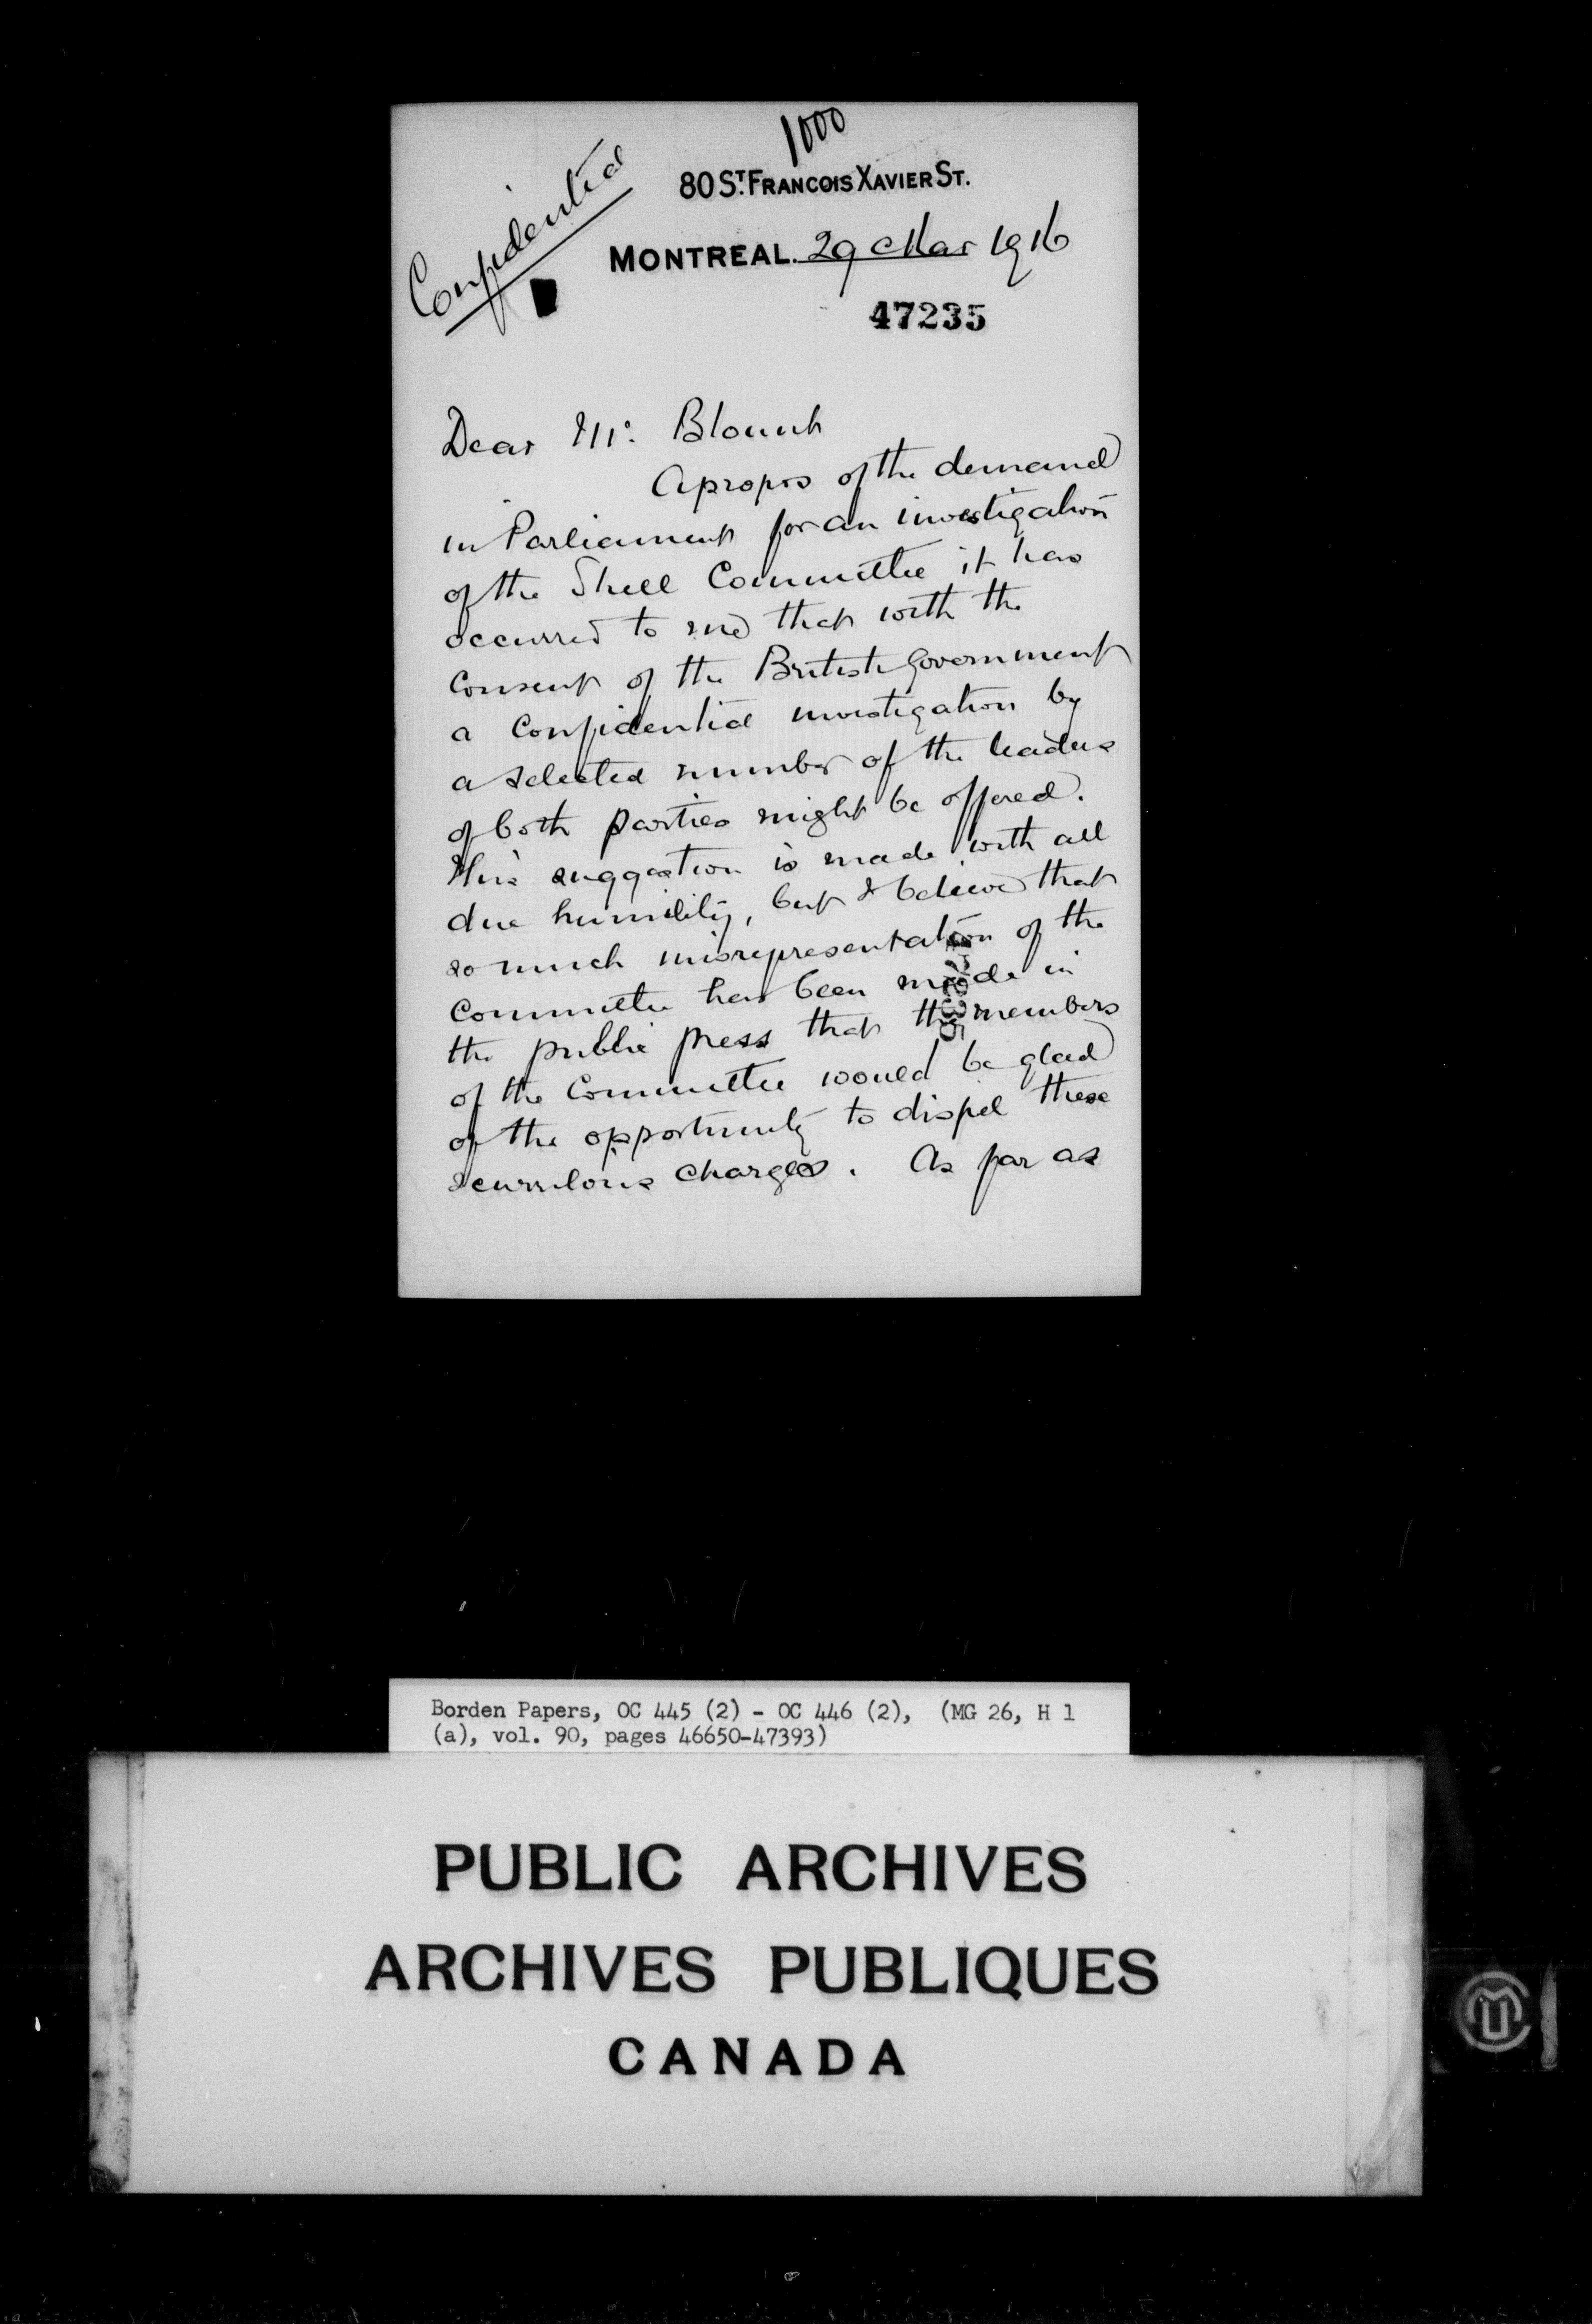 1000
Confidential
80 ST. FRANCOIS XAVIER ST.
MONTREAL. 29 Mar 1916
47235
Dear Mr. Blount
Apropos of the demand
in Parliament for an investigation
of the Shell Committee it has
occurred to me that with the
consent of the British Government
a confidential investigation by
a selected number of the leaders
of both parties might be offered.
This suggestion is made with all
due humility, but I believe that
so much misrepresentation of the
Committee has been made in
the public press that the members
of the Committee would be glad
of the opportunity to dispel these
scurrilous charges. As far as
Borden Papers, OC 445 (2) - OC 446 (2), (MG 26, H 1
(a), vol. 90, pages 46650-47393)
PUBLIC ARCHIVES
ARCHIVES PUBLIQUES
CANADA